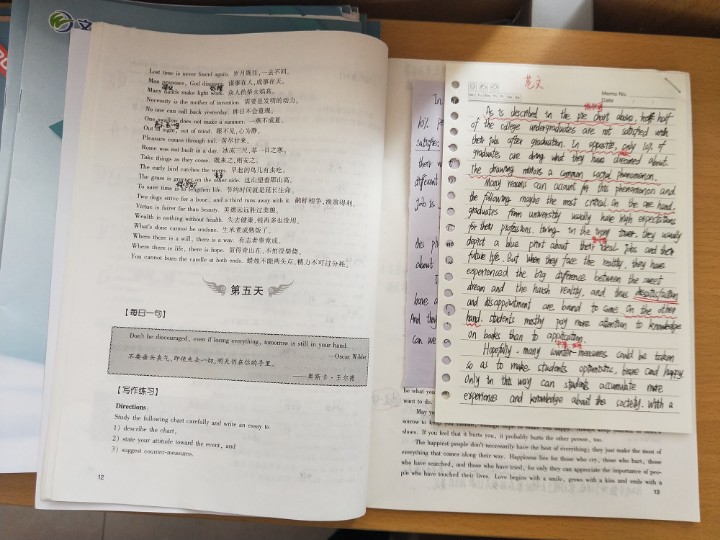 Lost time is never found again. 岁月既往,一去不回。
Man proposes, God disposes. 谋事在人,成事在天。
Many hands make light work. 众人的柴火焰高。
Necessity is the mother of invention. 需要是发明的动力。
No one can call back yesterday. 昨日不会重现。
One swallow does not make a summer. 一燕不成夏。
Out of sight, out of mind. 眼不见,心为静。
Pleasure comes through toil. 苦尽甘来。
Rome was not built in a day. 冰冻三尺,非一日之寒。
Take things as they come. 既来之,则安之。
The early bird catches the worm. 早起的鸟儿有虫吃。
The grass is greener on the other side. 这山望着那山高。
To save time is to lengthen life. 节约时间就是延长生命。
Two dogs strive for a bone, and a third runs away with it. 鹬蚌相争,渔翁得利。
Virtue is fairer far than beauty. 美德远远胜过美貌。
Wealth is nothing without health. 失去健康,钱再多也没用。
What's done cannot be undone. 生米煮成熟饭了。
Where there is a will, there is a way. 有志者事竟成。
Where there is life, there is hope. 留得青山在,不怕没柴烧。
You cannot burn the candle at both ends. 蜡烛不能两头点,精力不可过分耗。
第五天
【每日一句】
Don't be discouraged, even if losing everything, tomorrow is still in your hand.
——Oscar Wilde
不要垂头丧气,即使失去一切,明天仍在你的手里。
——奥斯卡·王尔德
【写作练习】
Directions:
Study the following chart carefully and write an essay to
1) describe the chart,
2) state your attitude toward the event, and
3) suggest counter-measures.
12
范文
Memo No.
Date
As is described in the pie chart above, half
of the college undergraduates are not satisfied with
their jobs after graduation. In opposite, only 10% of
graduates are doing what they have dreamed about.
The drawing mirrors a common social phenomenon.
Many reasons can account for this phenomenon and
the following maybe the most critical. On the one hand,
graduates from university usually have high expectations
for their professions. living in the ivory tower. they usually
depict a blue print about their ideal jobs and their
future life. But when they face the reality, they have
experienced the big difference between the sweet
dream and the harsh reality, and thus dissatisfaction
and disappointment are bound to come. On the other
hand. students mostly pay more attention to knowledge
on books than to application.
Hopefully, many counter-measures could be taken
so as to make students optimistic, brave and happy
only in this way can students accumulate more
experience and knowledge about the society. With a
shoes. If you feel that it hurts you, it probably hurts the other person, too.
The happiest people don't necessarily have the best of everything; they just make the most of
everything that comes along their way. Happiness lies for those who cry, those who hurt, those
who have searched, and those who have tried, for only they can appreciate the importance of peo-
ple who have touched their lives. Love begins with a smile, grows with a kiss and ends with a
13